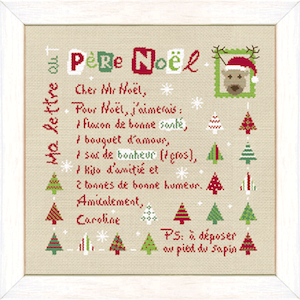 Ma lettre au
PÈRE NOËL
Cher Mr Noël,
Pour Noël, j'aimerais :
1 flacon de bonne santé,
1 bouquet d'amour,
1 sac de bonheur (1 gros),
1 kilo d'amitié et
2 tonnes de bonne humeur.
Amicalement,
Caroline
PS: à déposer
au pied du sapin